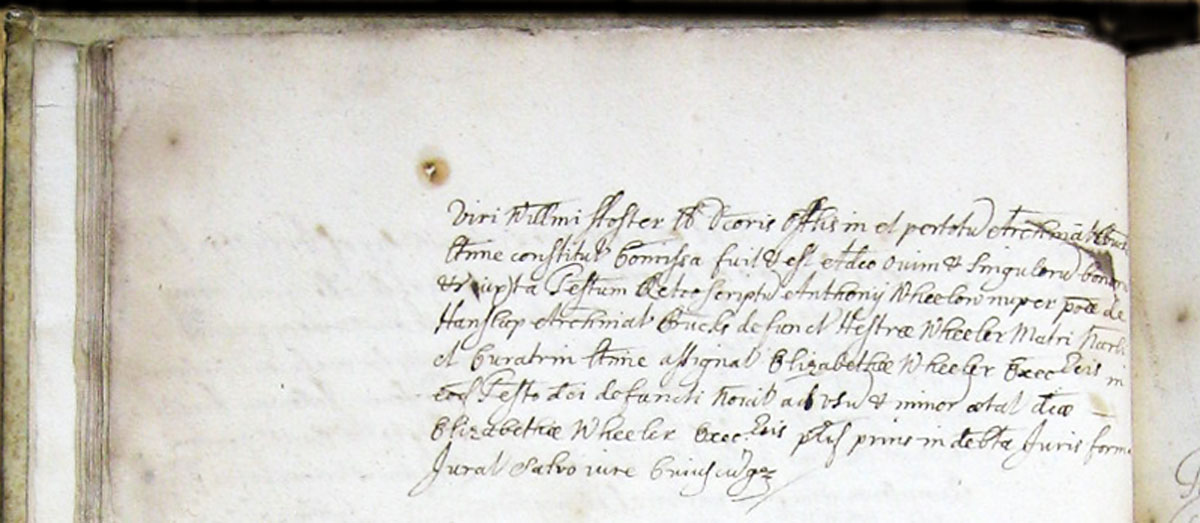 Viri Willmi ffoster LL Dcoris Offilis in et per totu Archinat Bucks
ltime constitut Comissa fuit & est et deo ouim & Singuloru bonoru
& iuxta Testum Retroscriptu Anthonij Wheeler nuper poae de
Hanslop Archinat Bucks defunct Hestrae Wheeler Matri
et Curatrin ltime assignat Elizabethae Wheeler Execricis in
eod Testo dci defuncti noiat ad vsu & minor aetat dcae
Elizabethae Wheeler Execricis prius in debta Juris form
Jurat Salvo iure Cuiuscuq